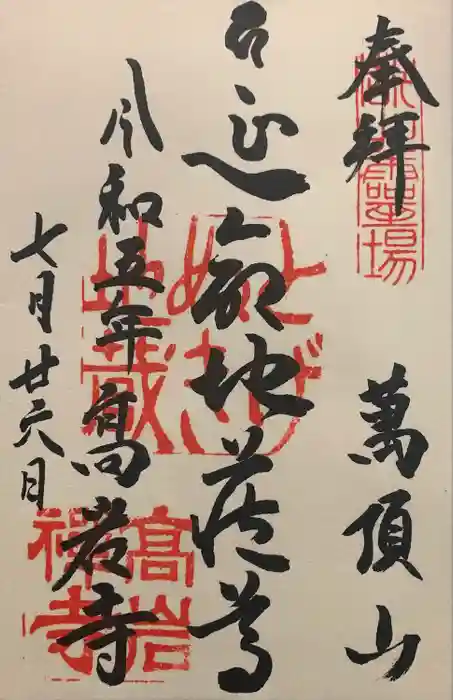 奉拝
萬頂山
延命地蔵尊
令和五年
高岩寺
七月廿六日
とげぬき
地蔵
高岩
禅寺